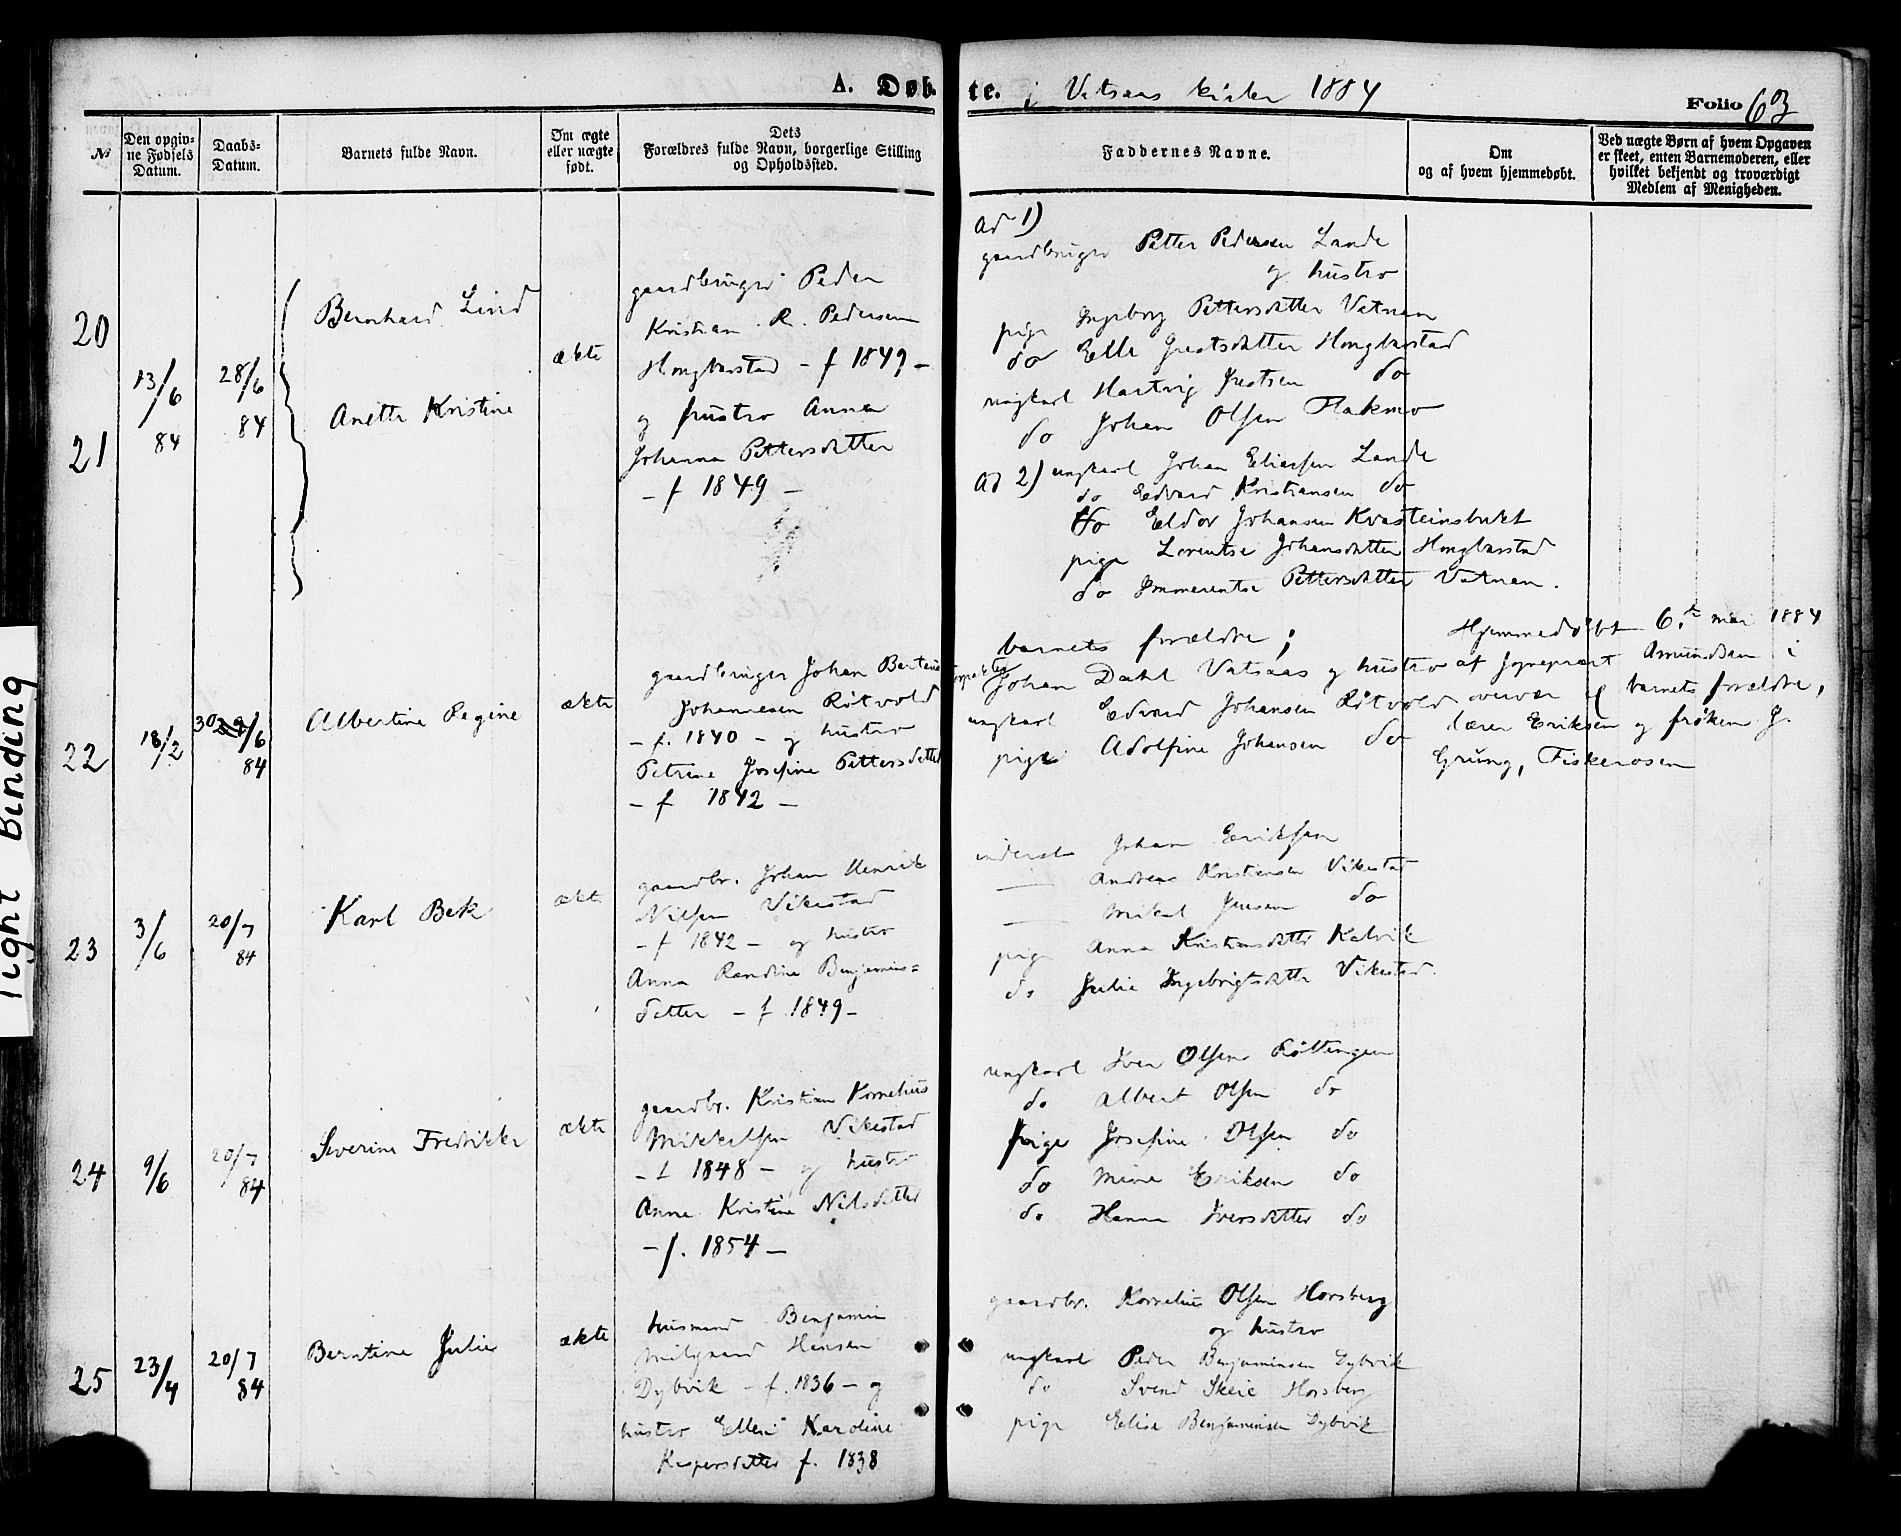 A. Døb- te. i Vatsaas kirke 1884
Folio 63
№
Den opgiv-
ne Fødsels
Datum.
Daabs-
Datum.
Barnets fulde Navn.
Om ægte
eller uægte
født.
Dets
Forældres fulde Navn, borgerlige Stilling
og Opholdssted.
Faddernes Navne.
Om
og af hvem hjemmedøbt.
Ved uægte Børn af hvem Opgaven
er skeet, enten Barnemoderen, eller
hvilket bekjendt og troværdigt
Medlem af Menigheden.
20
21
13/6
84
28/6
84
Bernhard Lind
Anette Kristine
ækte
gaardbruger Peder
Kristian R. Pedersen
Hongbarstad - f 1849 -
og hustro Anna
Johanna Pettersdatter
- f 1849 -
Ad 1)
gaardbruger Petter Pedersen Lande
og hustro
pige Ingeborg Pettersdatter Vatnan
do Elle Justsdatter Hongbarstad
ungkarl Hartvig Justsen do
do Johan Olsen Flakmo
Ad 2) ungkarl Johan Eliassen Lande
do Edvard Kristiansen do
do Eldor Johansen Kvasteinsbukt
pige Lorentse Johansdatter Hongbarstad
do Immerentse Pettersdatter Vatnan.
22
18/2
30/6
84
Albertine Regine
ækte
gaardbruger Johan Berteus
Johannesen Røtvold
- f. 1840 - og hustro
Petrine Josefine Pettersdatter
- f 1842 -
barnets forældre;
Johan Dahl Vatsaas og hustro
ungkarl Edvard Johansen Røtvold
pige Adolfine Johansen do
Hjemmedøbt 6. mai 1884
af sognepræst Amundsen i
overvær af barnets forældre,
lærer Eriksen og frøken J.
Grung, Fiskerosen
23
3/6
20/7
84
Karl Bek
ækte
gaardbr. Johan Henrik
Nilsen Vikestad
- f 1842 - og hustro
Anna Randine Benjamins=
datter - f. 1849 -
inderst Johan Eriksen
— Andreas Kristiansen Vikestad
— Mikal Jensen do
pige Anna Kristensdatter Kalvik
do Julie Ingebrigtsdatter Vikestad.
24
9/6
20/7
84
Severine Fredrikke
ækte
gaardbr. Kristian Kornelius
Mikkelsen Vikestad
- f 1848 - og hustro
Anne Kristine Nilsdatter
- f. 1854 -
ungkarl Iver Olsen Røttingen
do Albert Olsen do
pige Josefine Olsen do
do Mine Eriksen do
do Hanna Iversdatter do
25
23/4
20/7
84
Berntine Julie
ækte
husmand Benjamin
Milgaard Hansen
Dybvik - f. 1836 - og
hustro Ellen Karoline
Kaspersdatter f. 1838
gaardbr. Kornelius Olsen Horsberg
og hustro
ungkarl Peder Benjaminsen Dybvik
do Svend Skeie Horsberg
pige Elisa Benjaminsen Dybvik
Tight Binding